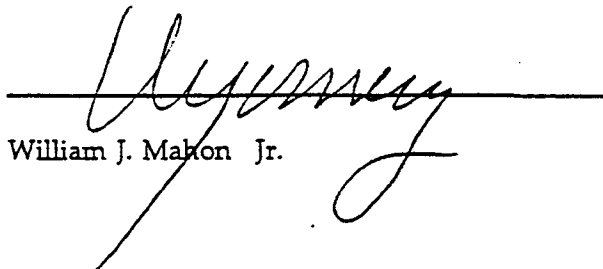 William J. Mahon Jr.